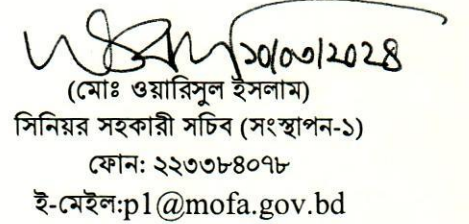 ১০/০৩/২০২৪
(মোঃ ওয়ারিসুল ইসলাম)
সিনিয়র সহকারী সচিব (সংস্থাপন-১)
ফোন: ২২৩৩৮৪০৭৮
ই-মেইল:p1@mofa.gov.bd